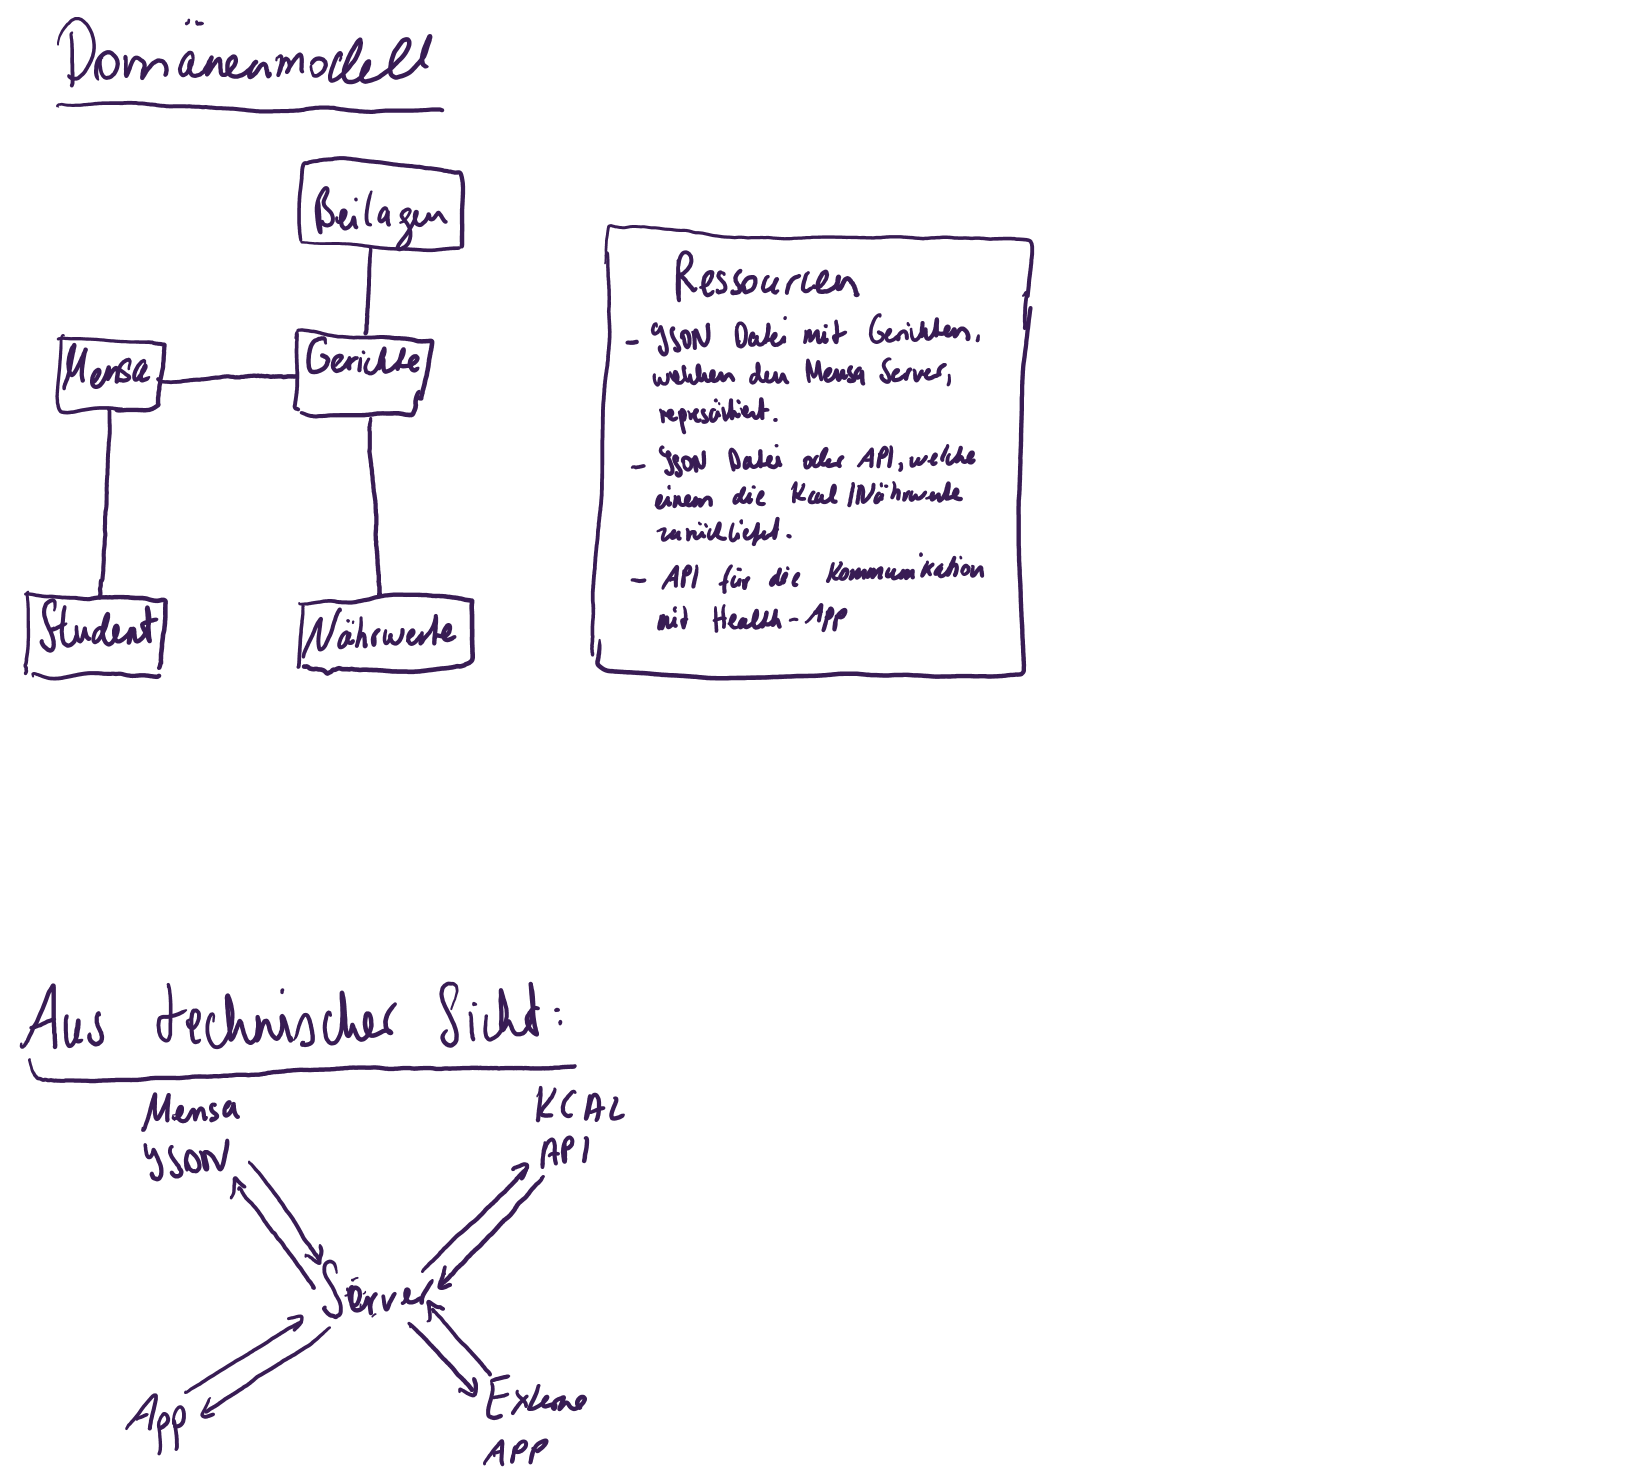 Domänenmodell
Beilagen
Mensa
Gerichte
Student
Nährwerte
Ressourcen
- JSON Datei mit Gerichten,
welchen den Mensa Server,
represäntiert.
- JSON Datei oder API, welche
einem die Kcal/Nährwerte
zurückliefert.
- API für die Kommunikation
mit Health-App
Aus technischer Sicht:
Mensa
JSON
KCAL
API
Server
App
Externe
APP